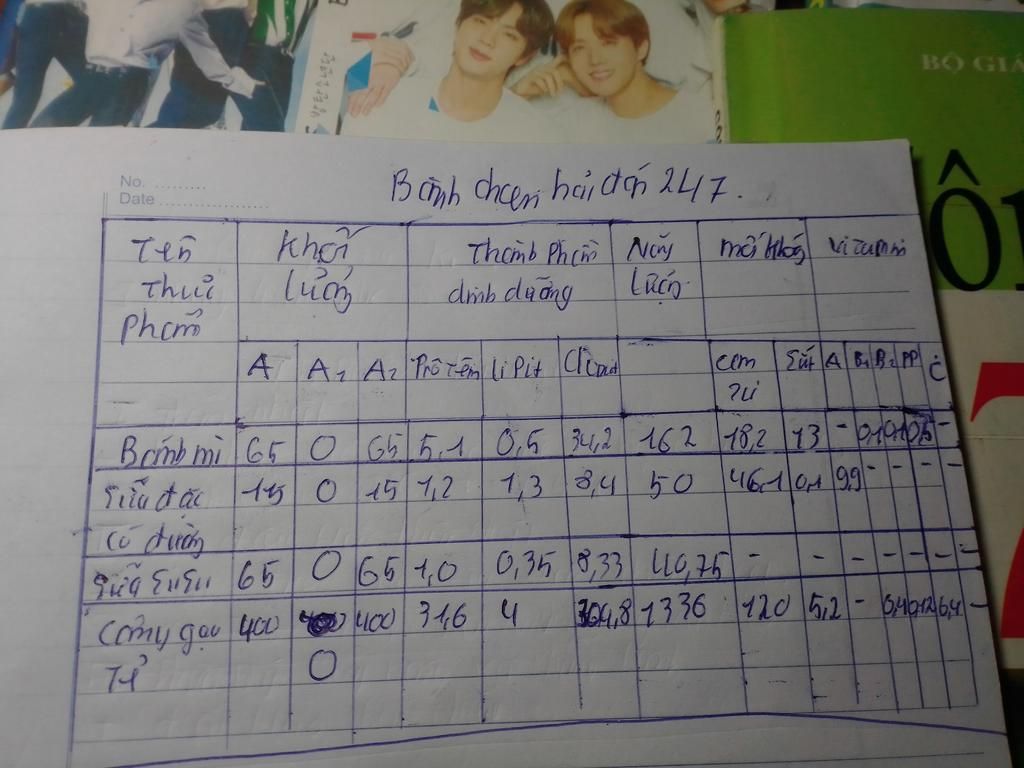 BỘ GIÁ
No.
Date
247.
Tên
Khối
Thành Phần
Năng
vitamin
Thực
lượng
dinh dưỡng
Lượng
Phẩm
A A1 A2 Prôtêin LiPit A B1 B2 PP C
Bánh mì 65 0 65 5,1 0,5 34,2 162 18,2 13 -
Sữa đặc 15 0 15 1,2 1,3 8,4 50 46,1 0,1 9,9 - - - -
có đường
65 0 65 1,0 0,35 8,33 40,75 - - - - - - -
400 400 31,6 4 304,8 1336 120 5,2 - 0,4 0,12 6,4 -
Tẻ 0